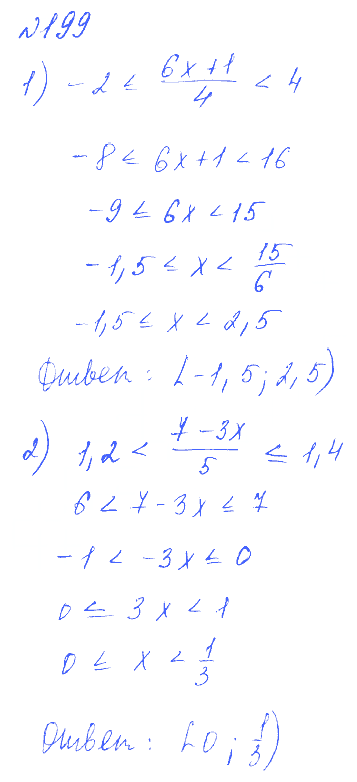 №199
1) -2 ≤ (6x+1)/4 < 4
-8 ≤ 6x+1 < 16
-9 ≤ 6x < 15
-1,5 ≤ x < 15/6
-1,5 ≤ x < 2,5
Ответ: [-1,5; 2,5)
2) 1,2 < (7-3x)/5 ≤ 1,4
6 < 7-3x ≤ 7
-1 < -3x ≤ 0
0 ≤ 3x < 1
0 ≤ x < 1/3
Ответ: [0; 1/3)